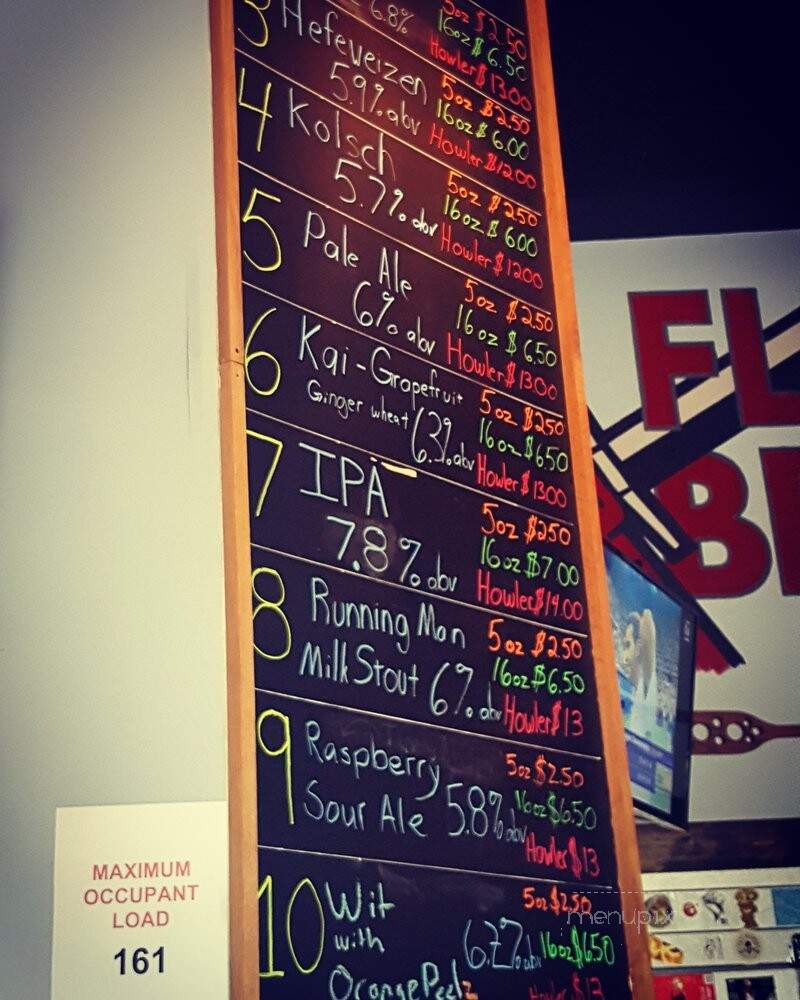 6.8%
5oz $2.50
16oz $6.50
Howler $1300
3 Hefeweizen
5.9% abv
5oz $2.50
16oz $6.00
Howler $1200
4 Kolsch
5.7% abv
5oz $250
16oz $600
Howler $1200
5 Pale Ale
6% abv
5oz $2.50
16oz $6.50
Howler $1300
6 Kai-Grapefruit
Ginger wheat 6.3% abv
5oz $250
16oz $650
Howler $1300
7 IPA
7.8% abv
5oz $250
16oz $7.00
Howler $14.00
8 Running Man
Milk Stout 6% abv
5oz $250
16oz $6.50
Howler $13
9 Raspberry
Sour Ale 5.8% abv
5oz $2.50
16oz $6.50
Howler $13
10 Wit
with
Orange Peel
5oz $2.50
16oz $6.50
Howler $13
MAXIMUM
OCCUPANT
LOAD
161
FL
BE
menupix